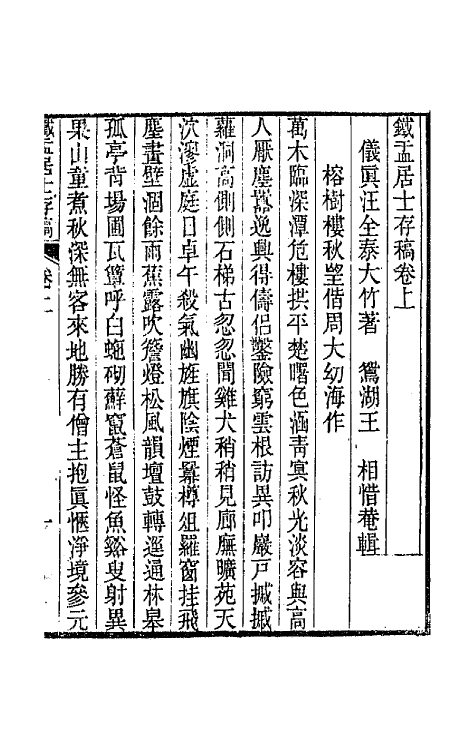 鐵盂居士存稿卷上
儀眞汪全泰大竹著　鴛湖王　相惜菴輯
榕樹樓秋望偕周大幼海作
萬木臨深潭危樓拱平楚曙色涵靑冥秋光淡容與高
人厭塵嚣逸興得儔侶鑿險窮雲根訪異叩巖戸摵摵
蘿洞高側側石梯古忽忽聞雞犬稍稍見廊廡曠苑天
泬漻虛庭日卓午殺氣幽旌旗陰煙羃樽俎羅窗挂飛
塵畫壁涸餘雨蕉露吹簷燈松風韻壇鼓轉逕通林皋
孤亭背場圃瓦𥴊呼白蝙砌蘚竄蒼鼠怪魚谿叟射異
果山童煮秋深無客來地勝有僧主抱眞愜淨境參元
鐵盂居士存稿　卷上　一